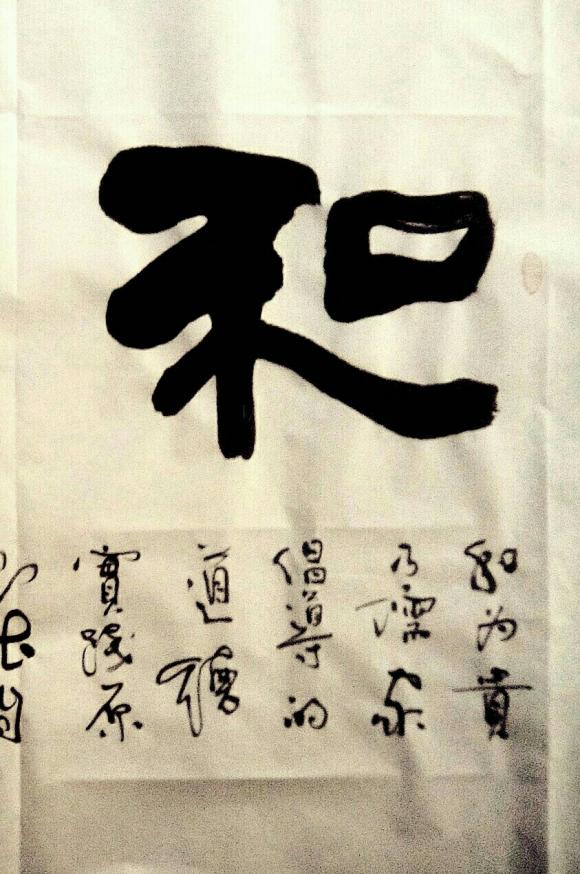 和
和为貴
乃儒家
倡導的
道德
實踐原